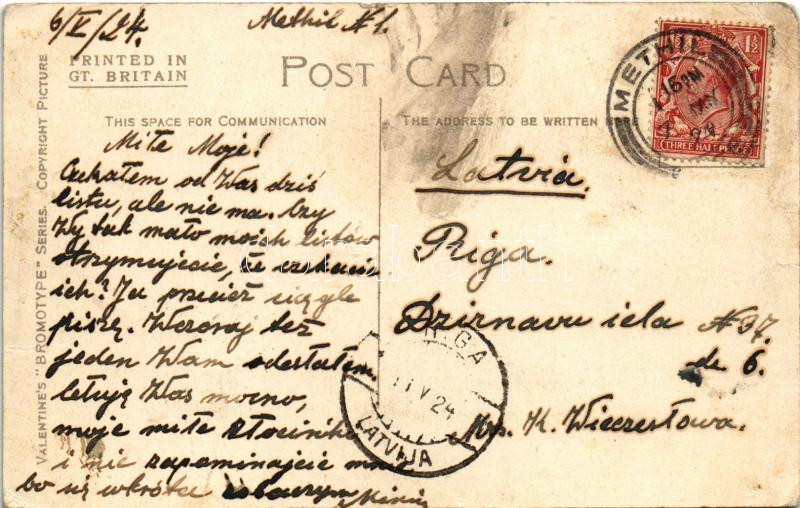 6/V/24. Methil N1.
PRINTED IN
GT. BRITAIN
POST CARD
THIS SPACE FOR COMMUNICATION
THE ADDRESS TO BE WRITTEN HERE
VALENTINE'S "BROMOTYPE" SERIES. COPYRIGHT PICTURE
Miłe Moje!
Czekałem od Was dziś
listu, ale nie ma. Czy
Wy tak mało moich listów
otrzymujecie, że czekacie
ich? Ja przecież ciągle
piszę. Wczoraj też
jeden Wam odesłałem
Was mocno,
moje miłe
i nie zapominajcie
bo się wkrótce zobaczym
Latvia.
Riga.
Dzirnavu iela N37.
dz. 6.
Mrs. K. Wieczestowa.
METHIL
15 PM
7 MY
24
THREE HALF PENCE
1½
RIGA
11 V 24
LATVIJA
darabanth